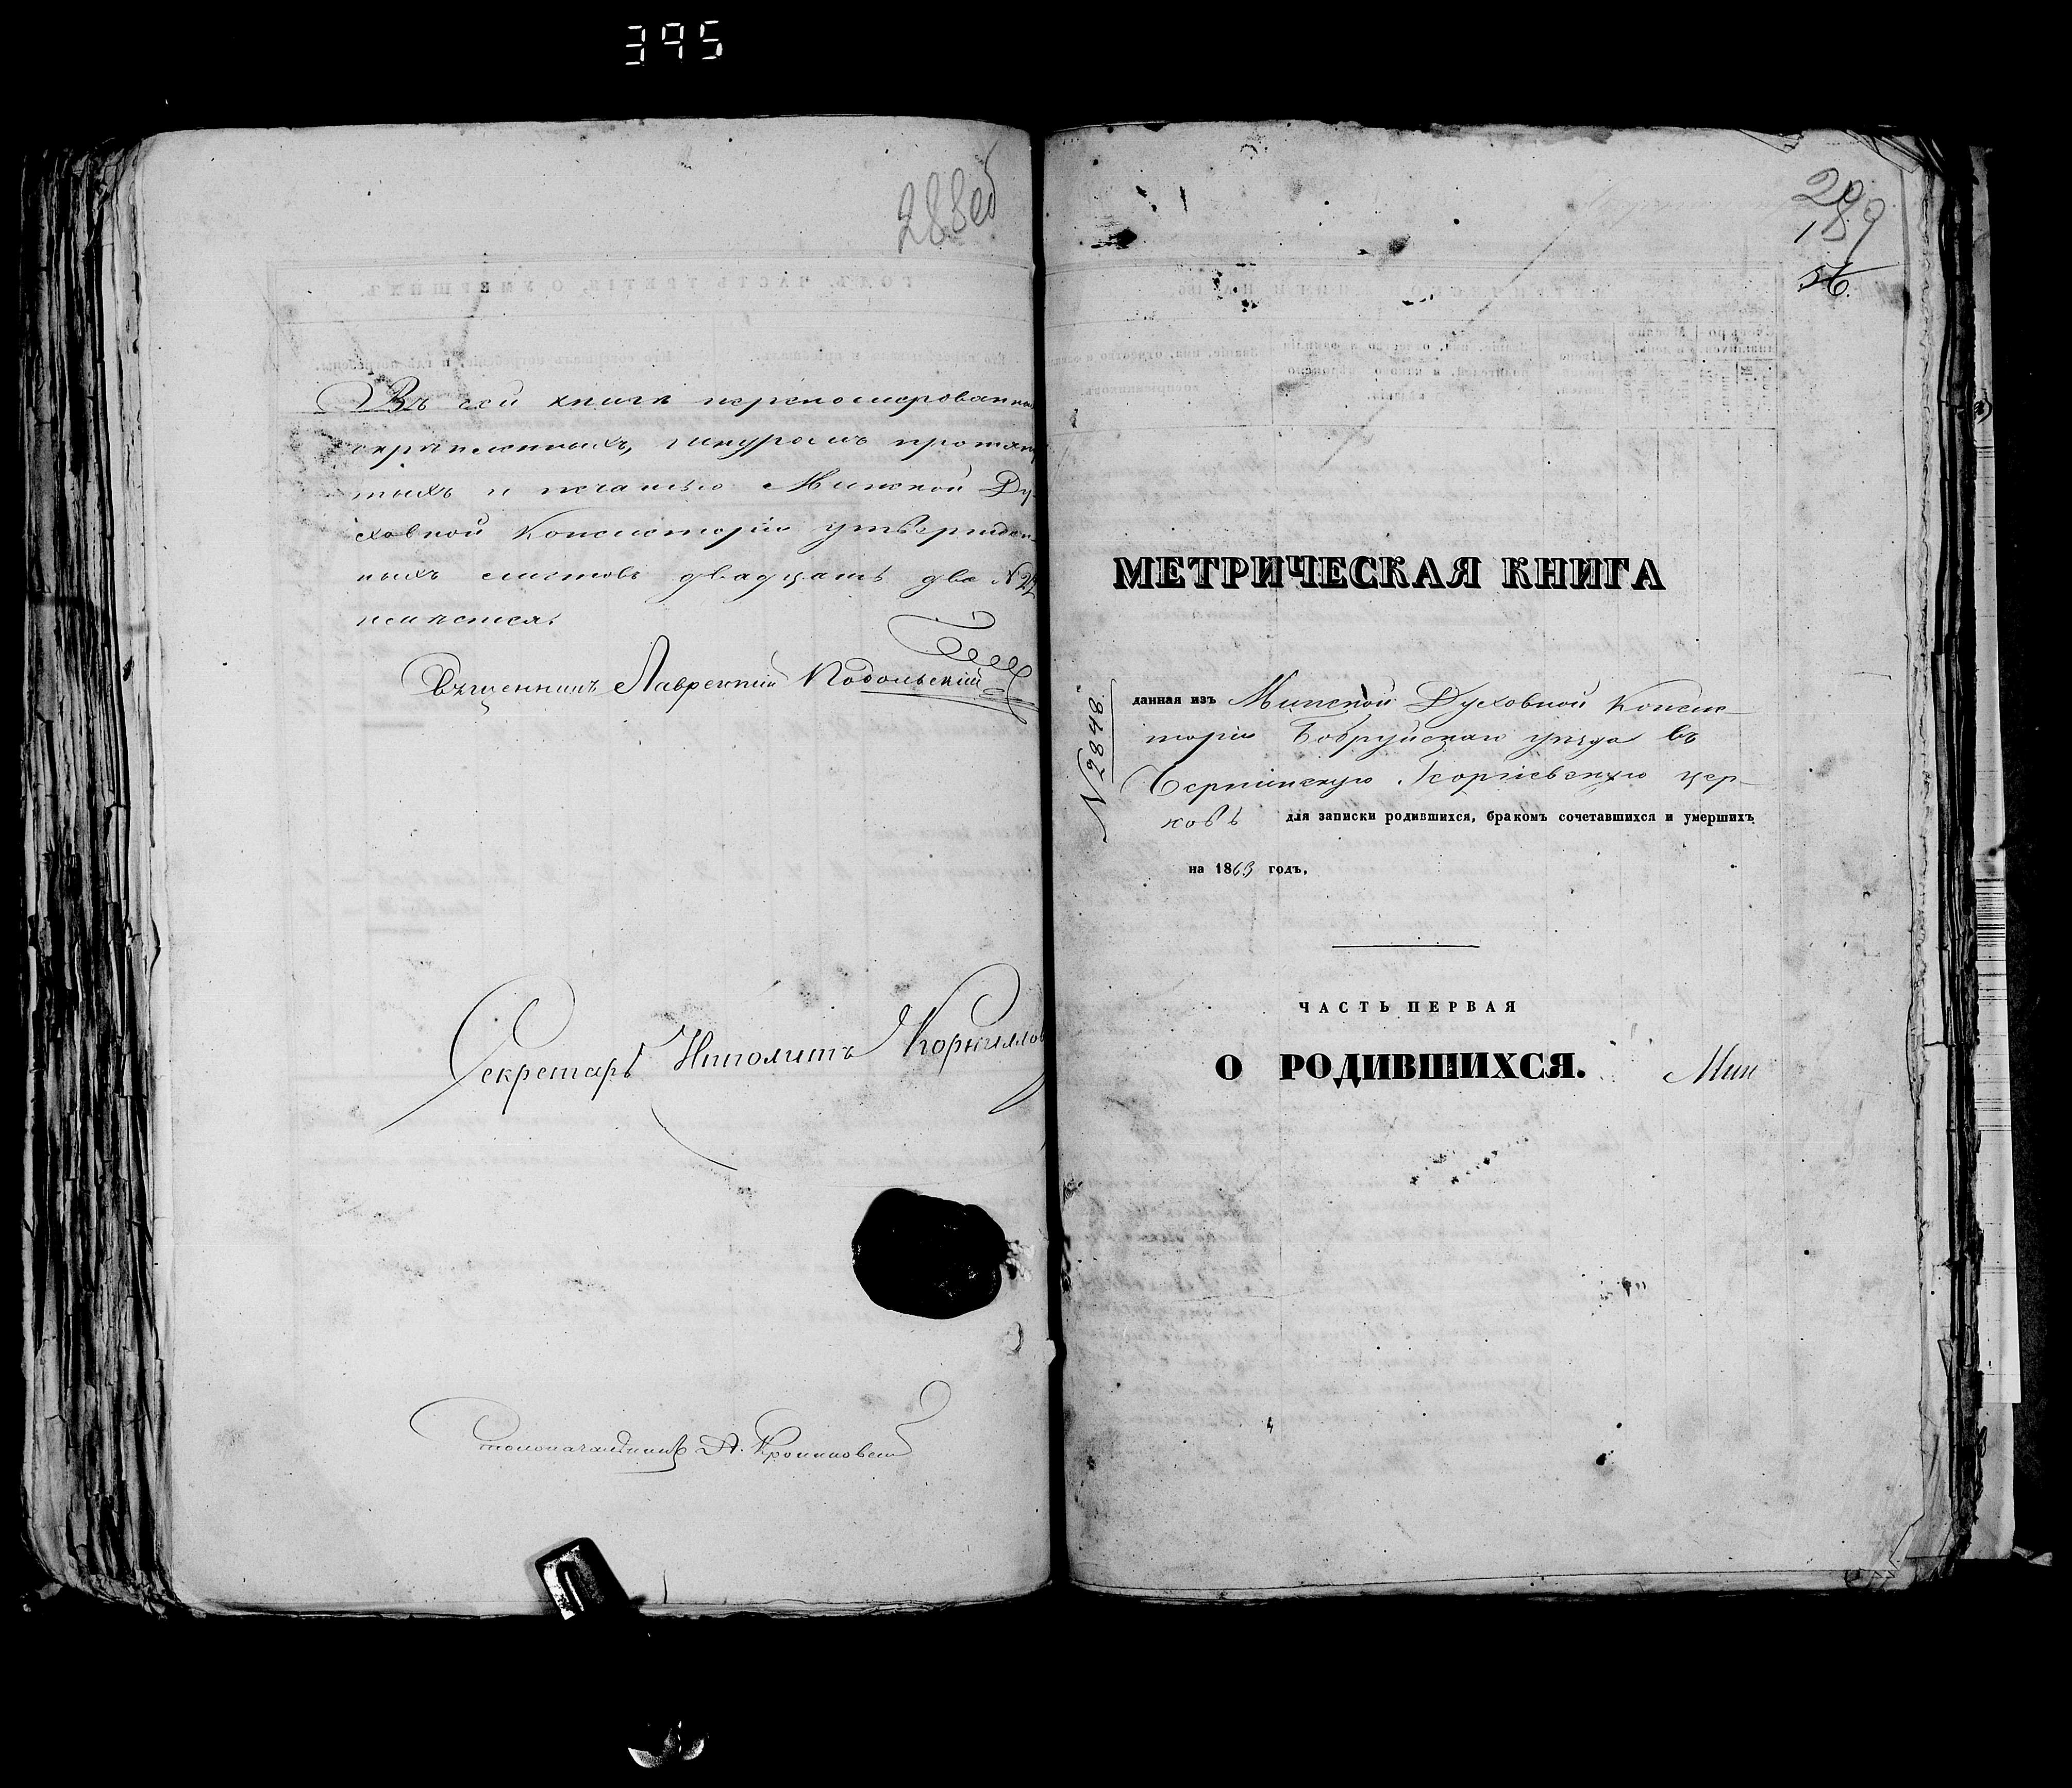 395
288об
Въ сей книгѣ перенумерованныхъ
скрѣпленныхъ, шнуромъ протяну
тыхъ и печатью Минской Ду-
ховной Консисторіи утвержден
ныхъ листовъ двадцать два № 22
имѣется.
Священникъ Лаврентий Подольский
Секретарь Иполитъ Корнилов
Столоначальникъ А.
289
56.
МЕТРИЧЕСКАЯ КНИГА
№ 2848.
данная изъ Минской Духовной Конси-
сторіи Бобруйскаго уѣзда въ
Георгіевскую цер-
ковь для записки родившихся, бракомъ сочетавшихся и умершихъ
на 1863 годъ.
ЧАСТЬ ПЕРВАЯ
О РОДИВШИХСЯ.
Мин